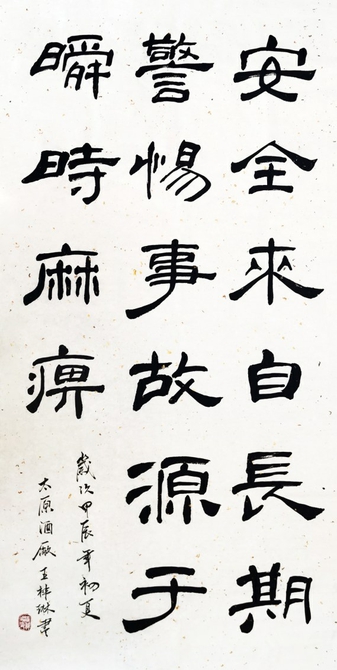 安全來自長期
警惕事故源于
瞬時麻痹
歲次甲辰年初夏
太原酒廠王梓琳書